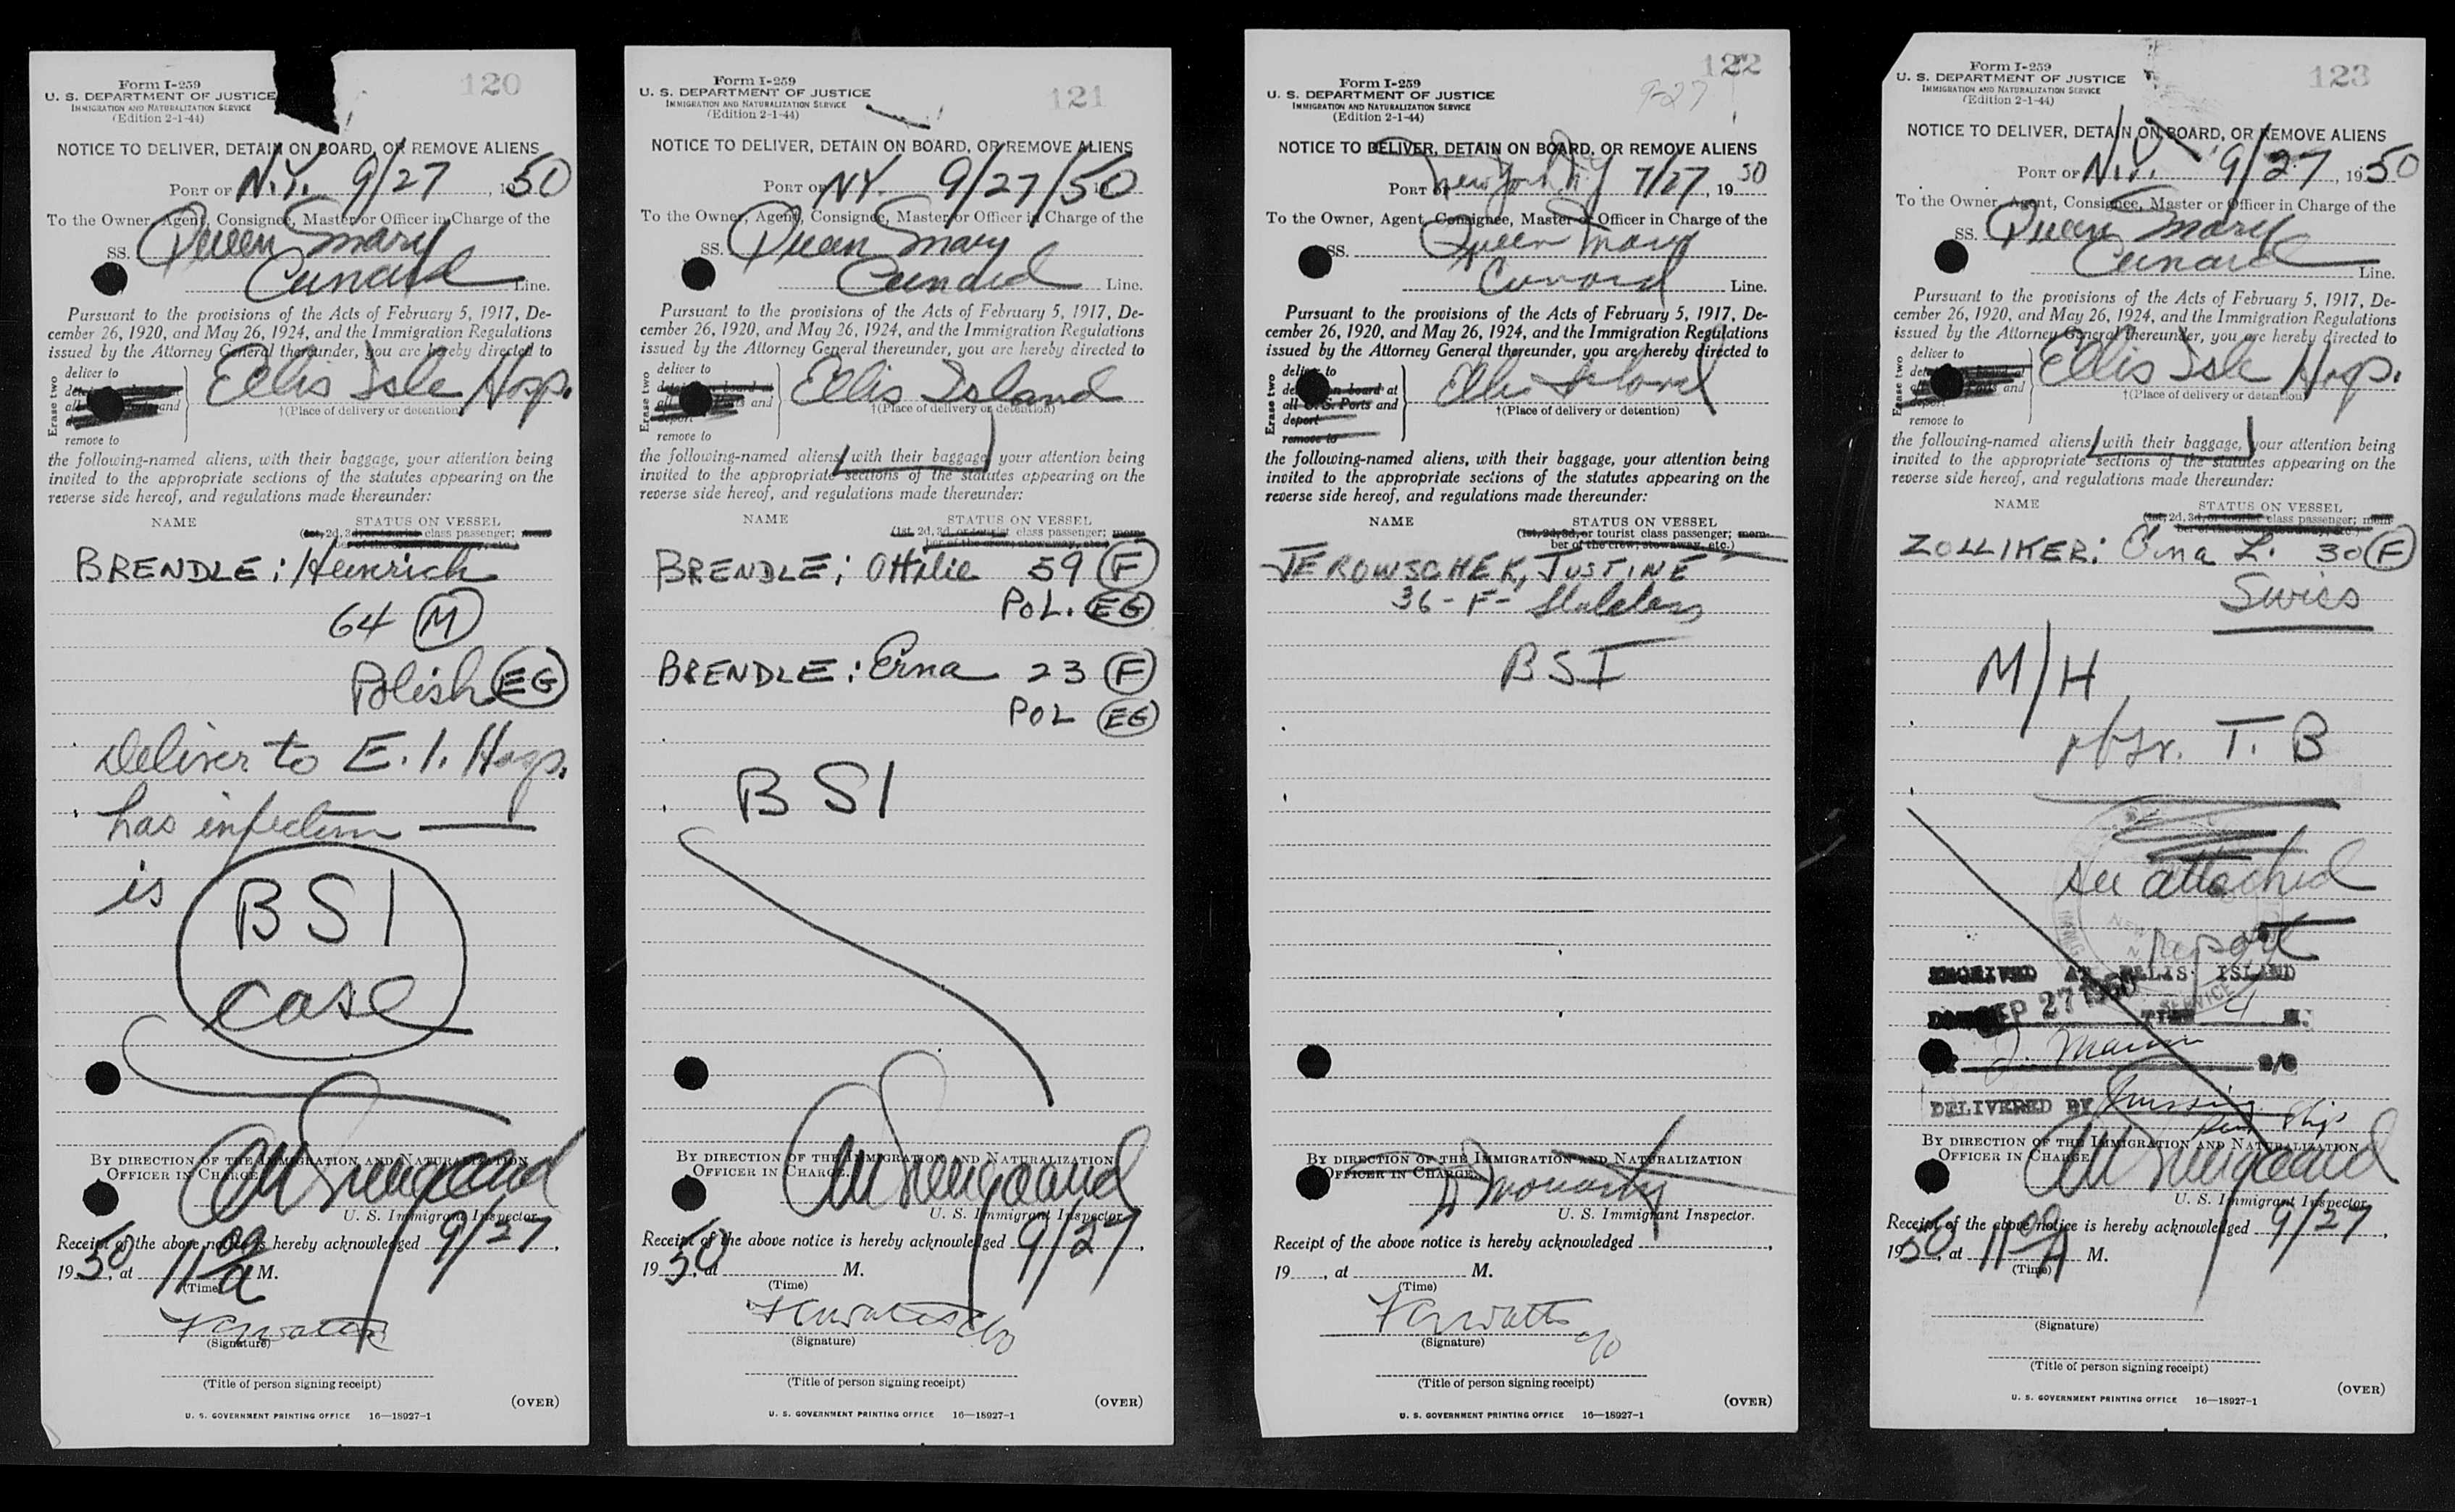 120
Form I-259
U. S. DEPARTMENT OF JUSTICE
IMMIGRATION AND NATURALIZATION SERVICE
(Edition 2-1-44)
NOTICE TO DELIVER, DETAIN ON BOARD, OR REMOVE ALIENS
PORT OF N.Y. 9/27, 1950
To the Owner, Agent, Consignee, Master or Officer in Charge of the
SS. Queen Mary
Cunard Line.
Pursuant to the provisions of the Acts of February 5, 1917, De-
cember 26, 1920, and May 26, 1924, and the Immigration Regulations
issued by the Attorney General thereunder, you are hereby directed to
Erase two
deliver to
all and
remove to
Ellis Isle Hosp.
†(Place of delivery or detention)
the following-named aliens, with their baggage, your attention being
invited to the appropriate sections of the statutes appearing on the
reverse side hereof, and regulations made thereunder:
NAME STATUS ON VESSEL
(1st, 2d, 3d, or tourist class passenger; mem-
ber of the crew; stowaway, etc.)
BRENDLE; Heinrich
64 M
Polish EG
Deliver to E.I. Hosp.
has infection —
is
BSI
case
BY DIRECTION OF THE IMMIGRATION AND NATURALIZATION
OFFICER IN CHARGE
U. S. Immigrant Inspector.
Receipt of the above notice is hereby acknowledged 9/27,
1950, at 11 00 a M.
(Time)
(Signature)
(Title of person signing receipt)
(OVER)
U. S. GOVERNMENT PRINTING OFFICE 16—18927-1
121
Form I-259
U. S. DEPARTMENT OF JUSTICE
IMMIGRATION AND NATURALIZATION SERVICE
(Edition 2-1-44)
NOTICE TO DELIVER, DETAIN ON BOARD, OR REMOVE ALIENS
PORT OF NY. 9/27/50
To the Owner, Agent, Consignee, Master or Officer in Charge of the
SS. Queen Mary
Cunard Line.
Pursuant to the provisions of the Acts of February 5, 1917, De-
cember 26, 1920, and May 26, 1924, and the Immigration Regulations
issued by the Attorney General thereunder, you are hereby directed to
Erase two
deliver to
Ports and
deport
remove to
Ellis Island
†(Place of delivery or detention)
the following-named aliens, with their baggage, your attention being
invited to the appropriate sections of the statutes appearing on the
reverse side hereof, and regulations made thereunder:
NAME STATUS ON VESSEL
(1st, 2d, 3d, or tourist class passenger; mem-
ber of the crew; stowaway, etc.)
BRENDLE; Ottilie 59 F
POL. EG
BRENDLE: Erna 23 F
POL EG
BSI
BY DIRECTION OF THE IMMIGRATION AND NATURALIZATION
OFFICER IN CHARGE.
U. S. Immigrant Inspector.
Receipt of the above notice is hereby acknowledged 9/27,
1950, at M.
(Time)
(Signature)
(Title of person signing receipt)
(OVER)
U. S. GOVERNMENT PRINTING OFFICE 16—18927-1
122
9-27
Form I-259
U. S. DEPARTMENT OF JUSTICE
IMMIGRATION AND NATURALIZATION SERVICE
(Edition 2-1-44)
NOTICE TO DELIVER, DETAIN ON BOARD, OR REMOVE ALIENS
PORT OF New York NY 7/27, 1950
To the Owner, Agent, Consignee, Master or Officer in Charge of the
SS. Queen Mary
Cunard Line.
Pursuant to the provisions of the Acts of February 5, 1917, De-
cember 26, 1920, and May 26, 1924, and the Immigration Regulations
issued by the Attorney General thereunder, you are hereby directed to
Erase two
deliver to
detain on board at
all U. S. Ports and
deport
remove to
Ellis Island
†(Place of delivery or detention)
the following-named aliens, with their baggage, your attention being
invited to the appropriate sections of the statutes appearing on the
reverse side hereof, and regulations made thereunder:
NAME STATUS ON VESSEL
(1st, 2d, 3d, or tourist class passenger; mem-
ber of the crew; stowaway, etc.)
JEROWSCHEK, JUSTINE
36 - F - Stateless
BSI
BY DIRECTION OF THE IMMIGRATION AND NATURALIZATION
OFFICER IN CHARGE
U. S. Immigrant Inspector.
Receipt of the above notice is hereby acknowledged ,
19 , at M.
(Time)
(Signature)
(Title of person signing receipt)
(OVER)
U. S. GOVERNMENT PRINTING OFFICE 16—18927-1
123
Form I-259
U. S. DEPARTMENT OF JUSTICE
IMMIGRATION AND NATURALIZATION SERVICE
(Edition 2-1-44)
NOTICE TO DELIVER, DETAIN ON BOARD, OR REMOVE ALIENS
PORT OF N.Y. 9/27, 1950
To the Owner, Agent, Consignee, Master or Officer in Charge of the
SS. Queen Mary
Cunard Line.
Pursuant to the provisions of the Acts of February 5, 1917, De-
cember 26, 1920, and May 26, 1924, and the Immigration Regulations
issued by the Attorney General thereunder, you are hereby directed to
Erase two
deliver to
Ports and
deport
remove to
Ellis Isle Hosp.
†(Place of delivery or detention)
the following-named aliens, with their baggage, your attention being
invited to the appropriate sections of the statutes appearing on the
reverse side hereof, and regulations made thereunder:
NAME STATUS ON VESSEL
(1st, 2d, 3d, or tourist class passenger; mem-
ber of the crew; stowaway, etc.)
ZOLLIKER: Erna L. 30 F
Swiss
M/H
obsr. T. B
see attached
report
RECEIVED AT ELLIS ISLAND
SEP 27 1950 TIME 4 M.
DELIVERED BY
BY DIRECTION OF THE IMMIGRATION AND NATURALIZATION
OFFICER IN CHARGE
U. S. Immigrant Inspector.
Receipt of the above notice is hereby acknowledged 9/27,
1950, at 11 00 A M.
(Time)
(Signature)
(Title of person signing receipt)
(OVER)
U. S. GOVERNMENT PRINTING OFFICE 16—18927-1